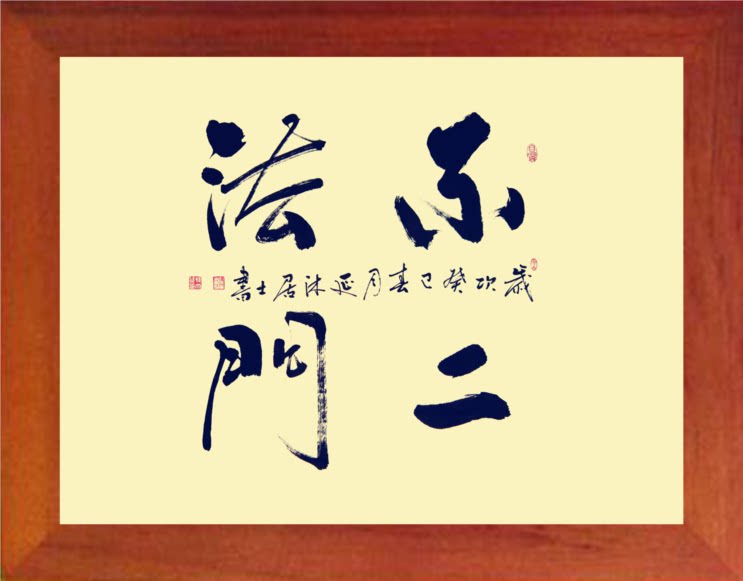 不二
法門
歲次癸巳春月延沐居士書